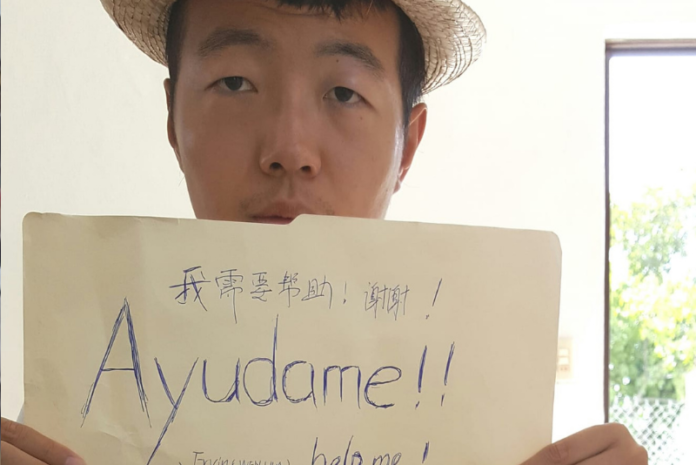 我需要帮助！谢谢！
Ayudame!!
help me!